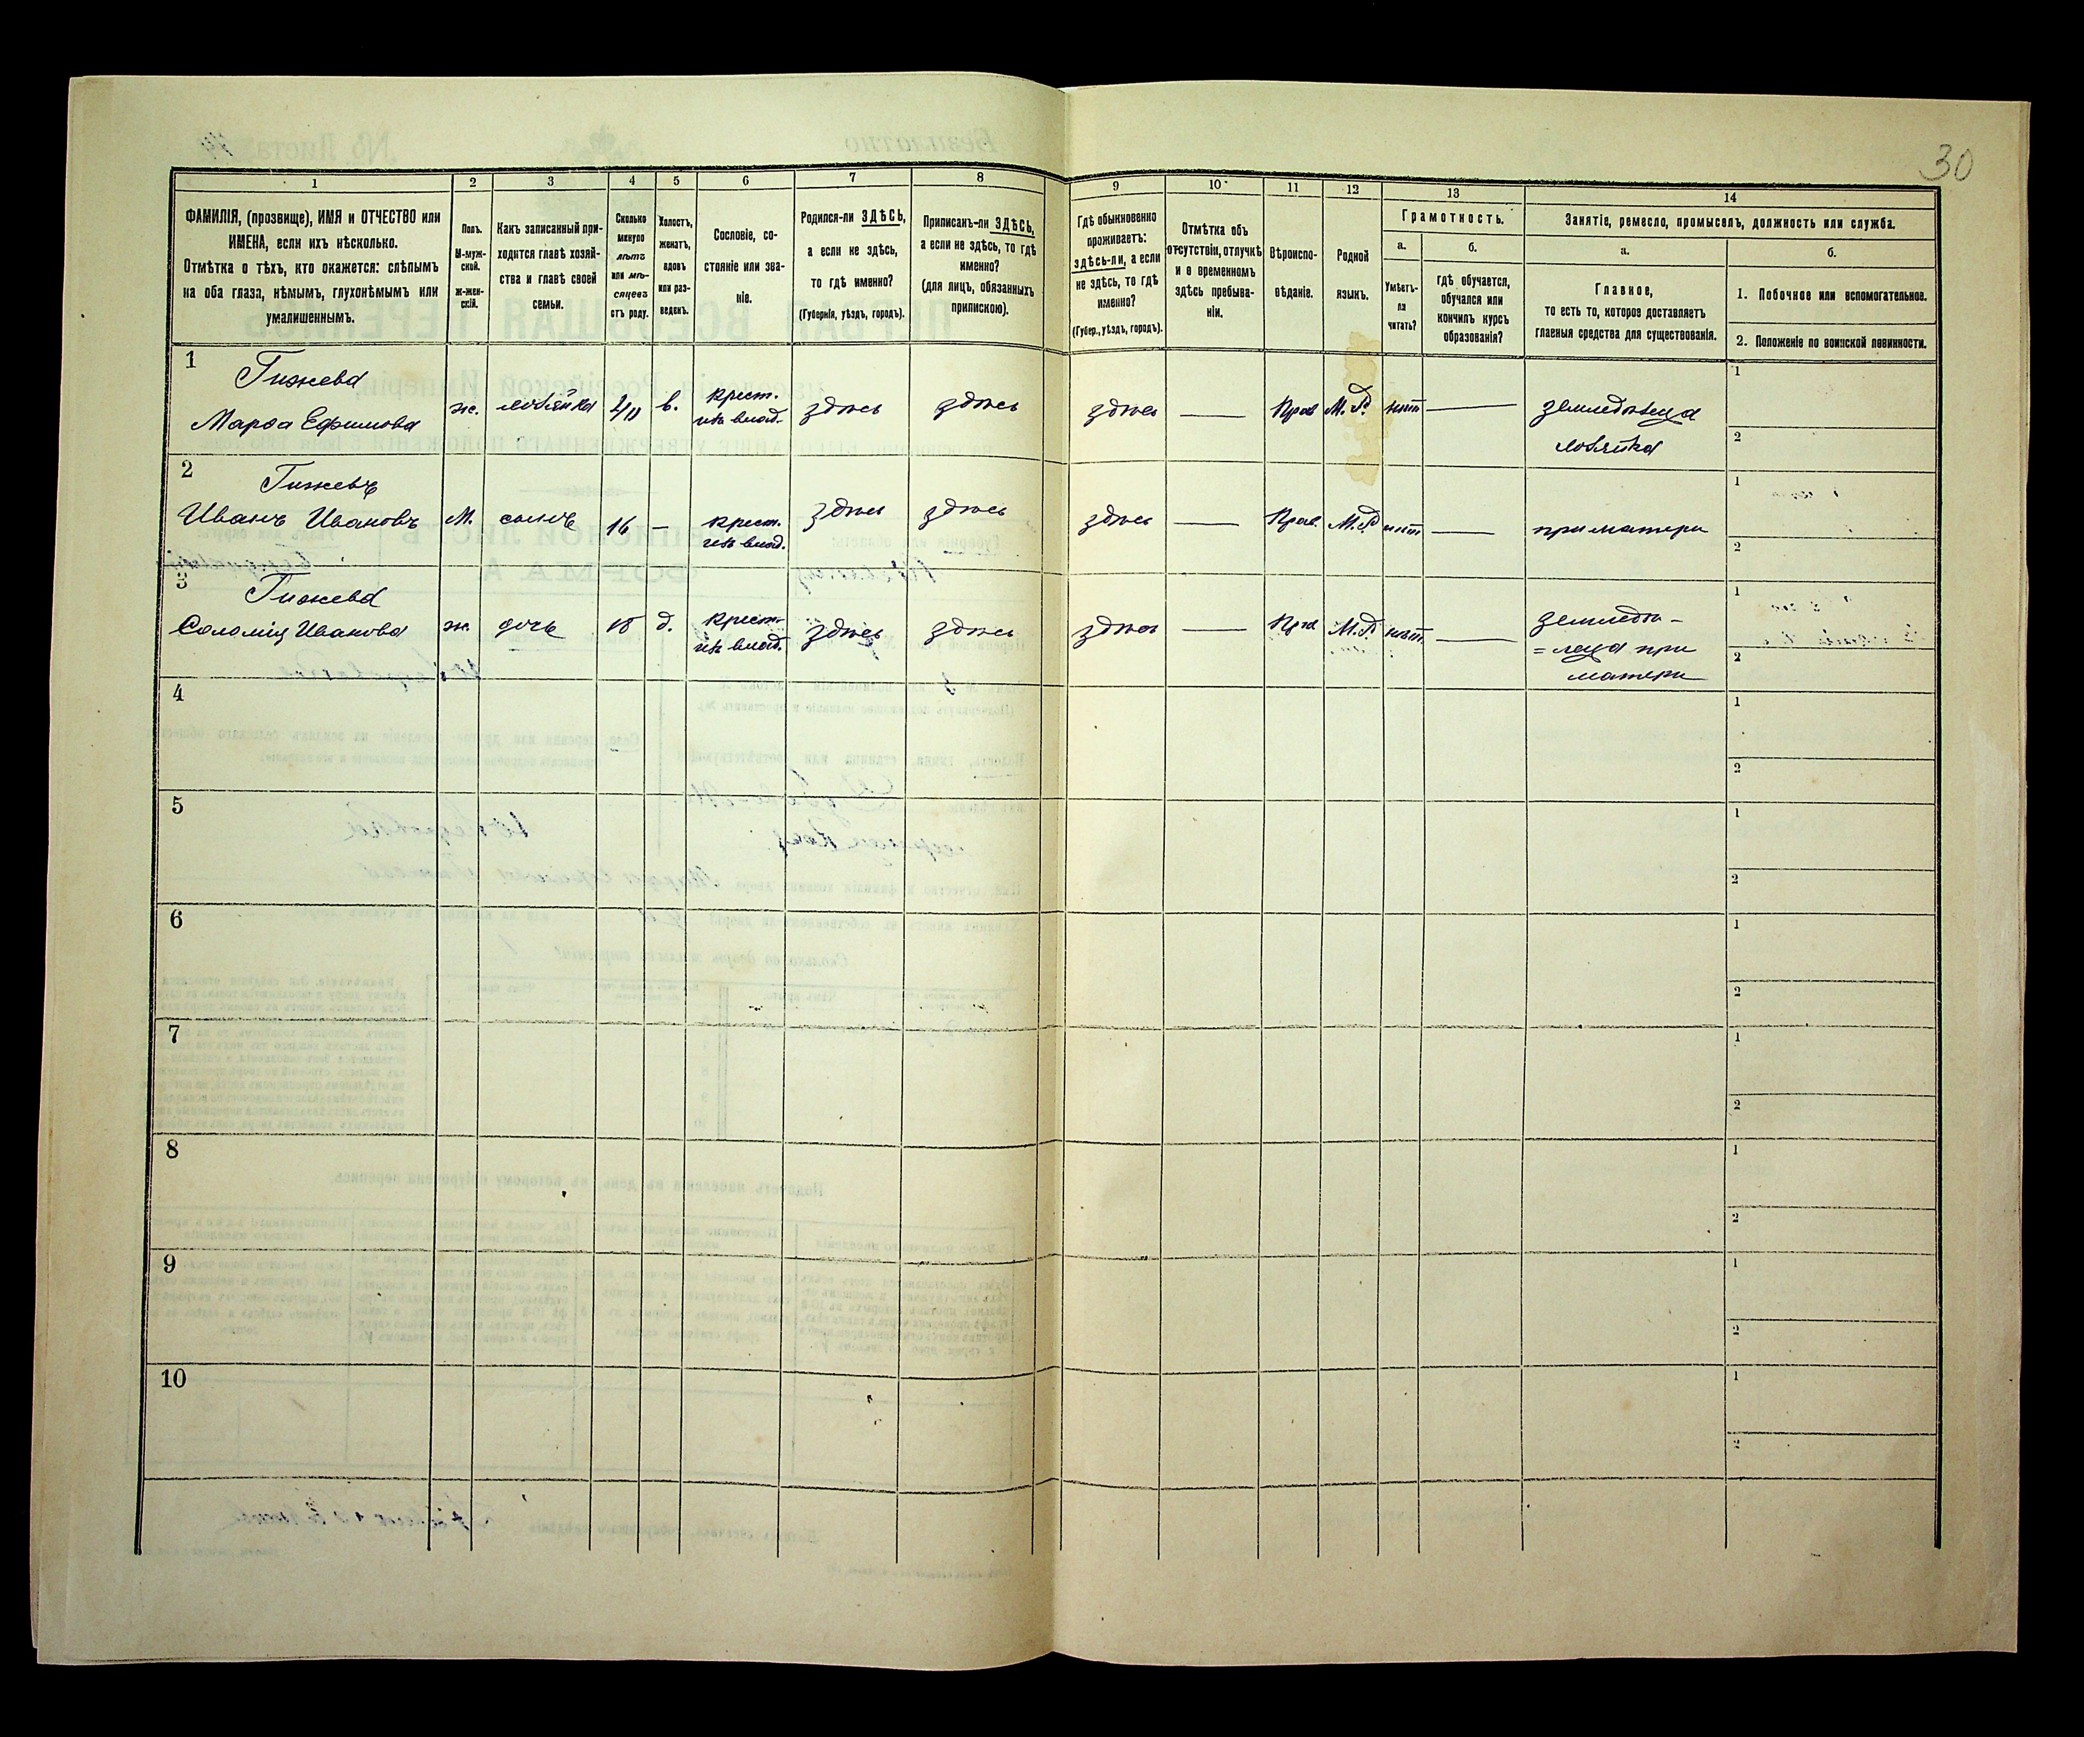 30
1
2
3
4
5
6
7
8
9
10
11
12
13
14
ФАМИЛІЯ, (прозвище), ИМЯ и ОТЧЕСТВО или
ИМЕНА, если ихъ нѣсколько.
Отмѣтка о тѣхъ, кто окажется: слѣпымъ
на оба глаза, нѣмымъ, глухонѣмымъ или
умалишеннымъ.
Полъ.
М-муж-
ской.
ж-жен-
скій.
Какъ записанный при-
ходится главѣ хозяй-
ства и главѣ своей
семьи.
Сколько
минуло
лѣтъ
или мѣ-
сяцевъ
отъ роду.
Холостъ,
женатъ,
вдовъ
или раз-
веденъ.
Сословіе, со-
стояніе или зва-
ніе.
Родился-ли ЗДѢСЬ,
а если не здѣсь,
то гдѣ именно?
(Губернія, уѣздъ, городъ).
Приписанъ-ли ЗДѢСЬ,
а если не здѣсь, то гдѣ
именно?
(для лицъ, обязанныхъ
припискою).
Гдѣ обыкновенно
проживаетъ:
здѣсь-ли, а если
не здѣсь, то гдѣ
именно?
(Губер., уѣздъ, городъ).
Отмѣтка объ
отсутствіи, отлучкѣ
и о временномъ
здѣсь пребыва-
ніи.
Вѣроиспо-
вѣданіе.
Родной
языкъ.
Грамотность.
а.
Умѣетъ-
ли
читать?
б.
Гдѣ обучается,
обучался или
кончилъ курсъ
образованія?
Занятіе, ремесло, промыселъ, должность или служба.
а.
Главное,
то есть то, которое доставляетъ
главныя средства для существованія.
б.
1. Побочное или вспомогательное.
2. Положеніе по воинской повинности.
1
Гижева
Марѳа Ефимова
ж.
хозяйка
40
в.
крест.
изъ влад.
здѣсь
здѣсь
здѣсь
Прав
М.Р.
нѣтъ
земледѣлица
хозяйка
1
2
2
Гижевъ
Иванъ Ивановъ
М.
сынъ
16
—
крест.
изъ влад.
здѣсь
здѣсь
здѣсь
Прав.
М.Р
нѣтъ
при матери
1
2
3
Гижева
Соломія Иванова
ж.
дочь
д.
крест.
изъ влад.
здѣсь
здѣсь
здѣсь
Пра
М.Р.
нѣтъ
земледѣ-
=лица при
матери
1
2
4
1
2
5
1
2
6
1
2
7
1
2
8
1
2
9
1
2
10
1
2